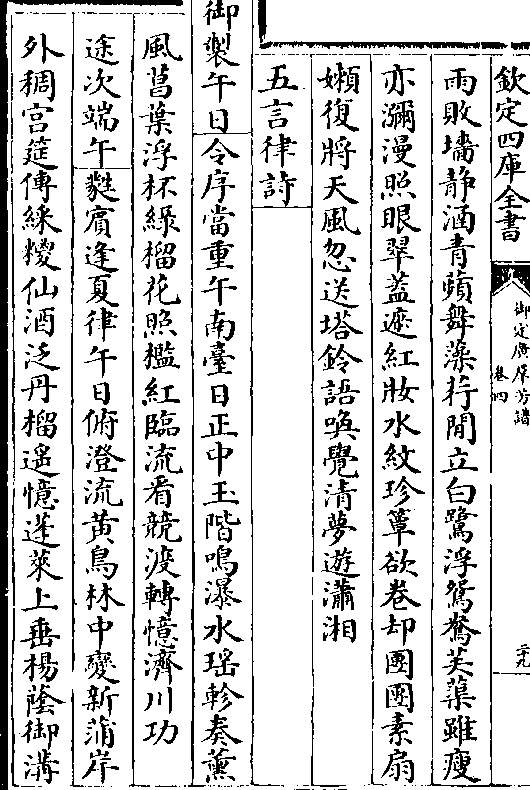 欽定四庫全書
御定廣羣芳譜
卷四
二十九
雨敗墻静涵青蘋舞藻荇閒立白鷺浮鴛鴦芙蕖雖瘦
亦瀰漫照眼翠蓋遮紅妝水紋珍簟欲卷却團團素扇
嬾復將天風忽送塔鈴語喚覺清夢遊瀟湘
五言律詩
御製午日令序當重午南臺日正中玉階鳴瀑水瑶軫奏薰
風菖葉浮杯綠榴花照檻紅臨流看競渡轉憶濟川功
途次端午蕤賓逢夏律午日俯澄流黄鳥林中變新蒲岸
外稠宫筵傳綵糉仙酒泛丹榴遥憶蓬萊上垂楊蔭御溝